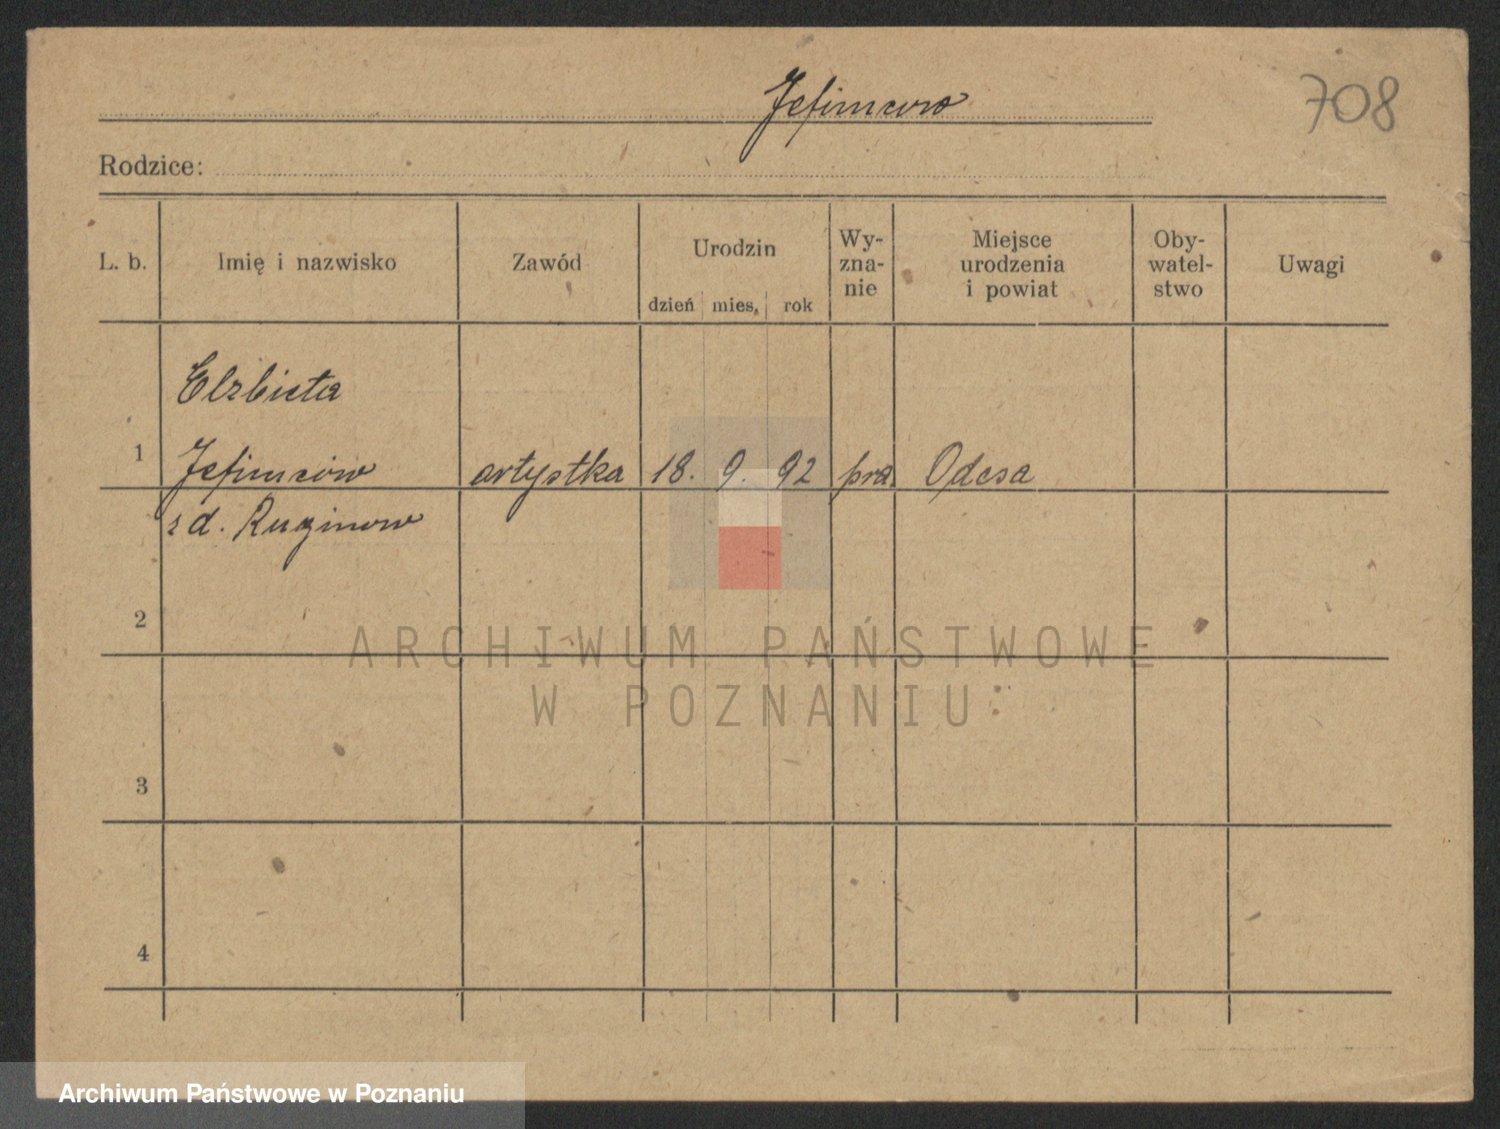 Jefimcow
708
Rodzice:
L. b. Imię i nazwisko Zawód Urodzin Wy-zna-nie Miejsce urodzenia i powiat Oby-watel-stwo Uwagi
dzień mies. rok
Elzbieta
1 Jefimców artystka 18. 9. 92 pra. Odesa
z d. Ruzinow
2
ARCHIWUM PAŃSTWOWE
W POZNANIU
3
4
Archiwum Państwowe w Poznaniu